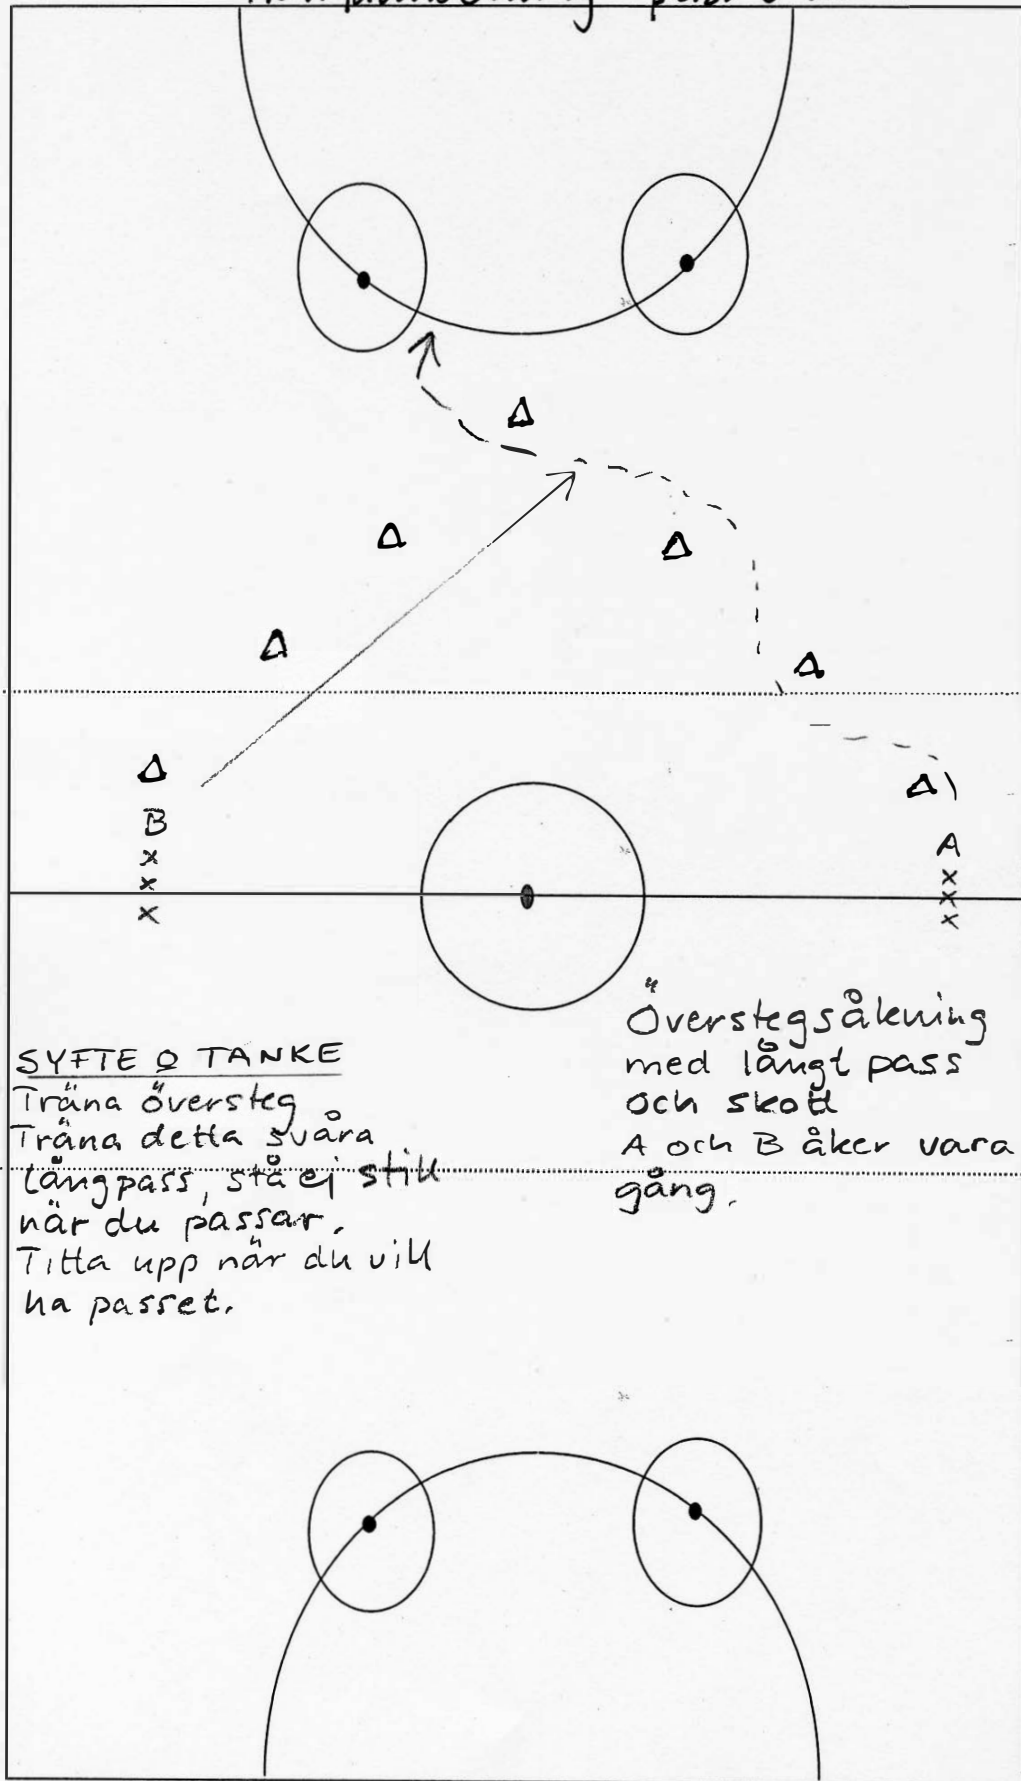 B
x
x
x
A
x
x
x
SYFTE O TANKE
Träna översteg
Träna detta svåra
långpass, stå ej still
när du passar.
Titta upp när du vill
ha passet.
Överstegsåkning
med långt pass
och skott
A och B åker vara
gång.